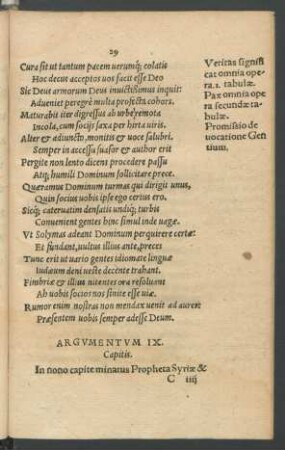 29
Cura sit ut tantum pacem uerumq́; colatis
Hoc decus acceptos uos facit esse Deo
Sic Deus armorum Deus inuictißimus inquit:
Adueniet peregrè multa profecta cohors.
Maturabit iter digressus ab urbe remota
Incola, cum socijs saxa per hirta uiris.
Alter & adiuncto, monitis & uoce salubri.
Semper in accessu suasor & author erit
Pergite non lento dicent procedere passu
Atq; humili Dominum sollicitare prece.
Quæramus Dominum turmas qui dirigit unus,
Quin socius uobis ipse ego certus ero.
Sicq́; cateruatim densatis undiq; turbis
Conuenient gentes hinc simul inde uagæ.
Vt Solymas adeant Dominum perquirere certæ:
Et fundant, uultus illius ante, preces
Tunc erit ut uario gentes idiomate linguæ
Iudæum deni ueste decente trahant.
Fimbriæ & illius nitentes ora resoluant
Ab uobis socios nos sinite esse uiæ.
Rumor enim nostras non mendax uenit ad aures:
Præsentem uobis semper adesse Deum.
Veritas signifi
cat omnia ope-
ra. 1. tabulæ.
Pax omnia ope
ra secundæ ta-
bulæ.
Promissio de
uocatione Gen
tium.
ARGVMENTVM IX.
Capitis.
In nono capite minatus Propheta Syriæ &
C iiij